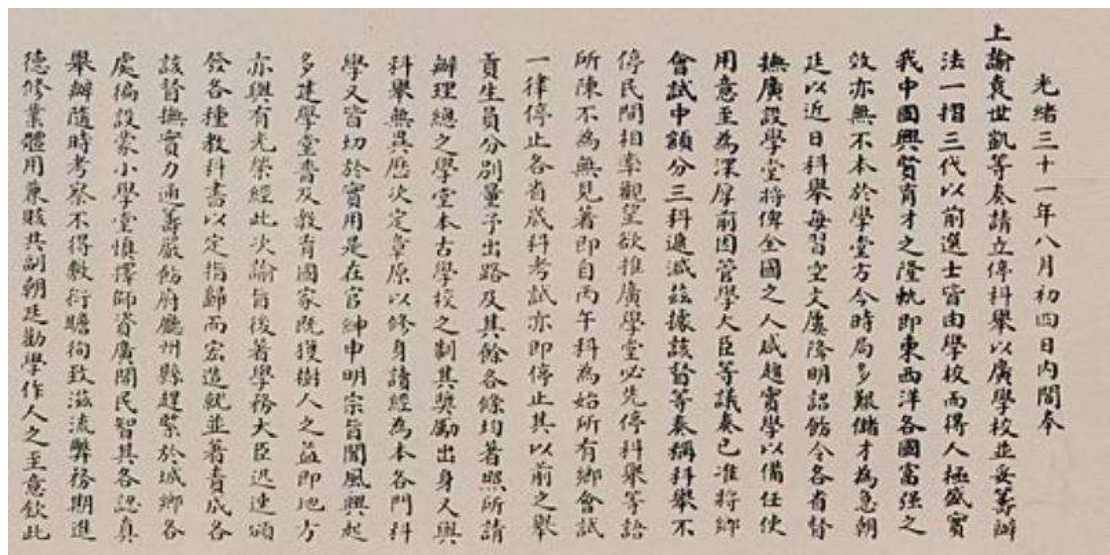 光緒三十一年八月初四日內閣奉
上諭袁世凱等奏請立停科舉以廣學校並妥籌辦
法一摺三代以前選士皆由學校而得人極盛實
我中國興賢育才之隆軌即東西洋各國富強之
效亦無不本於學堂方今時局多艱儲才為急朝
廷以近日科舉每習空文屢降明詔飭令各省督
撫廣設學堂將俾全國之人咸趨實學以備任使
用意至為深厚前因管學大臣等議奏已准將鄉
會試中額分三科遞減茲據該督等奏稱科舉不
停民間相率觀望欲推廣學堂必先停科舉等語
所陳不為無見著即自丙午科為始所有鄉會試
一律停止各省歲科考試亦即停止其以前之舉
貢生員分別量予出路及其餘各條均著照所請
辦理總之學堂本古學校之制其獎勵出身又與
科舉無異歷次定章原以修身讀經為本各門科
學又皆切於實用是在官紳申明宗旨聞風興起
多建學堂普及教育國家既獲樹人之益即地方
亦與有光榮經此次諭旨後著學務大臣迅速頒
發各種教科書以定指歸而宏造就並著責成各
該督撫實力通籌嚴飭府廳州縣趕緊於城鄉各
處徧設蒙小學堂慎擇師資廣開民智其各認真
舉辦隨時考察不得敷衍瞻徇致滋流弊務期進
德修業體用兼賅共副朝廷勸學作人之至意欽此